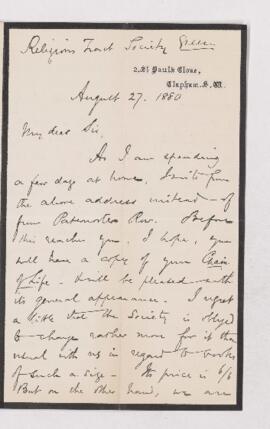 Religious Tract Society
2, St Paul's Close,
Clapham. S. W.
August 27. 1880
My dear Sir,
As I am spending
a few days at home, I write from
the above address instead of
from Paternoster Row. Before
this reaches you, I hope, you
will have a copy of your Chain
of Life - & will be pleased with
its general appearance. I regret
a little that the Society is obliged
to charge rather more for it than
usual with us in regard to books
of such a size - Its price is 6/6
But on the other hand, we are